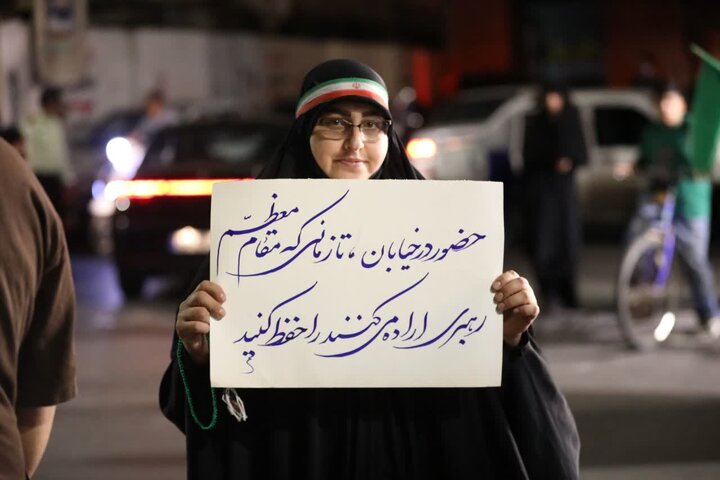 حضور در خیابان، تا زمانی که مقام معظّم
رهبری اراده می‌کنند را حفظ کنید